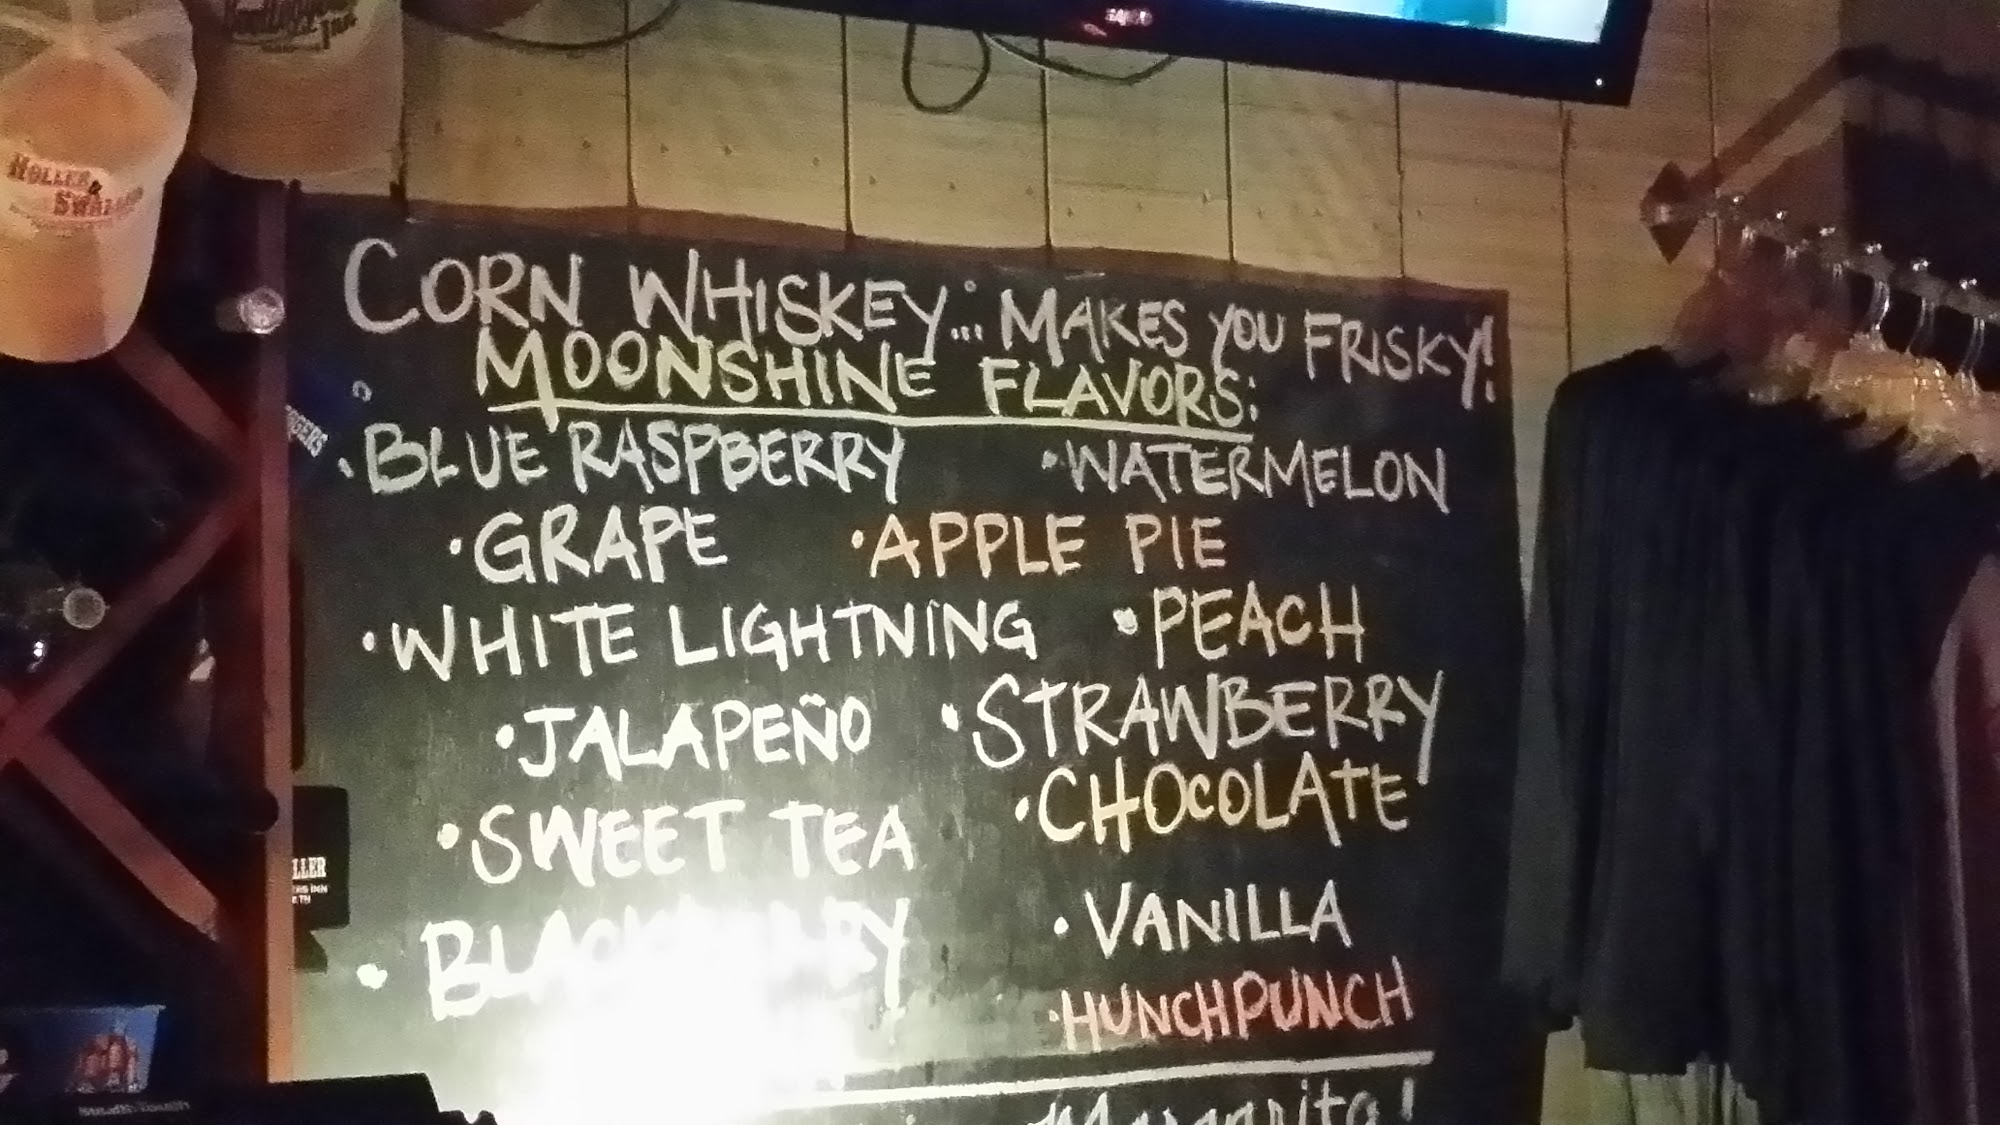 HOLLER &
SWALLOW
CORN WHISKEY... MAKES YOU FRISKY!
MOONSHINE FLAVORS:
• BLUE RASPBERRY • WATERMELON
• GRAPE • APPLE PIE
• WHITE LIGHTNING • PEACH
• JALAPEÑO • STRAWBERRY
• SWEET TEA • CHOCOLATE
• BLACKBERRY • VANILLA
• HUNCHPUNCH
Margarita!
LLER